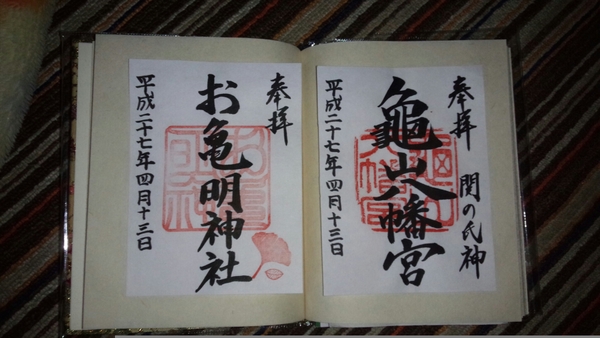 奉拝 関の氏神
龜山八幡宮
平成二十七年四月十三日
奉拝
お亀明神社
平成二十七年四月十三日